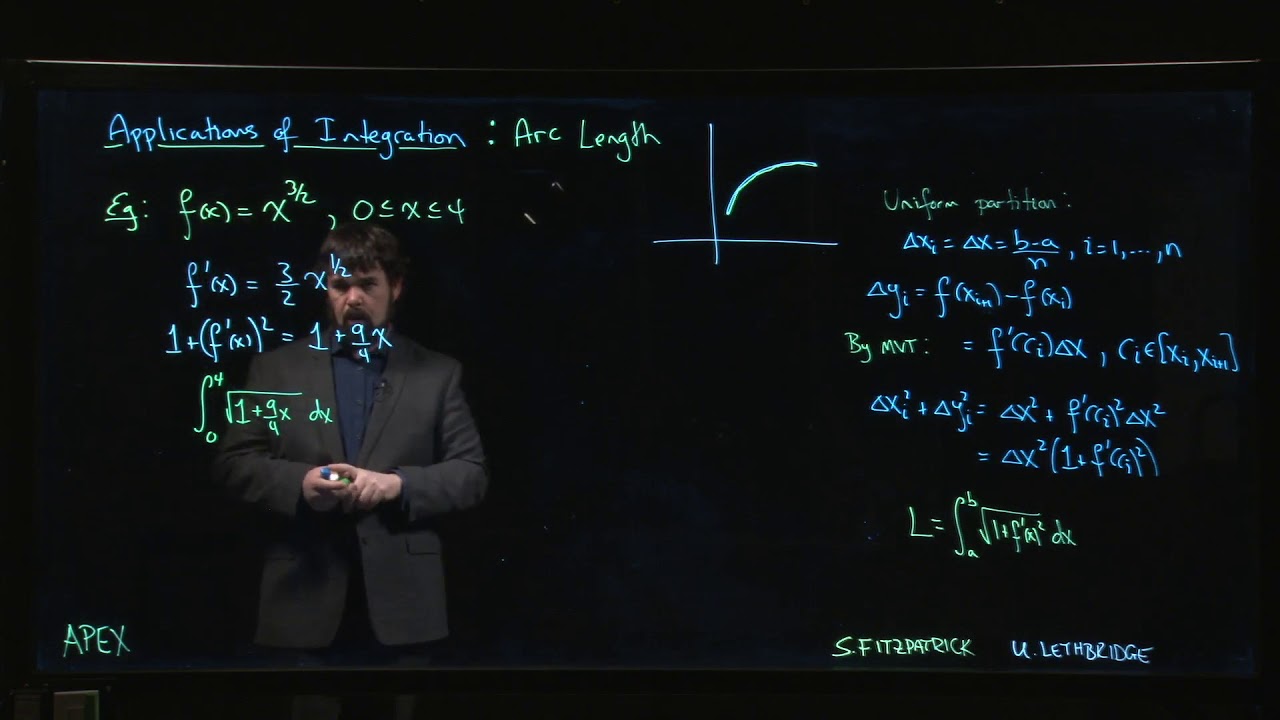 Applications of Integration : Arc Length
Eg: f(x) = x^{3/2} , 0 ≤ x ≤ 4
f'(x) = 3/2 x^{1/2}
1+(f'(x))^2 = 1 + 9/4 x
∫_0^4 √(1+9/4 x) dx
Uniform partition:
Δx_i = Δx = (b-a)/n , i=1,...,n
Δy_i = f(x_{i+1}) - f(x_i)
By MVT: = f'(c_i)Δx , c_i ∈ [x_i, x_{i+1}]
Δx_i^2 + Δy_i^2 = Δx^2 + f'(c_i)^2 Δx^2
= Δx^2 (1+f'(c_i)^2)
L = ∫_a^b √(1+f'(x)^2) dx
APEX
S. FITZPATRICK U. LETHBRIDGE